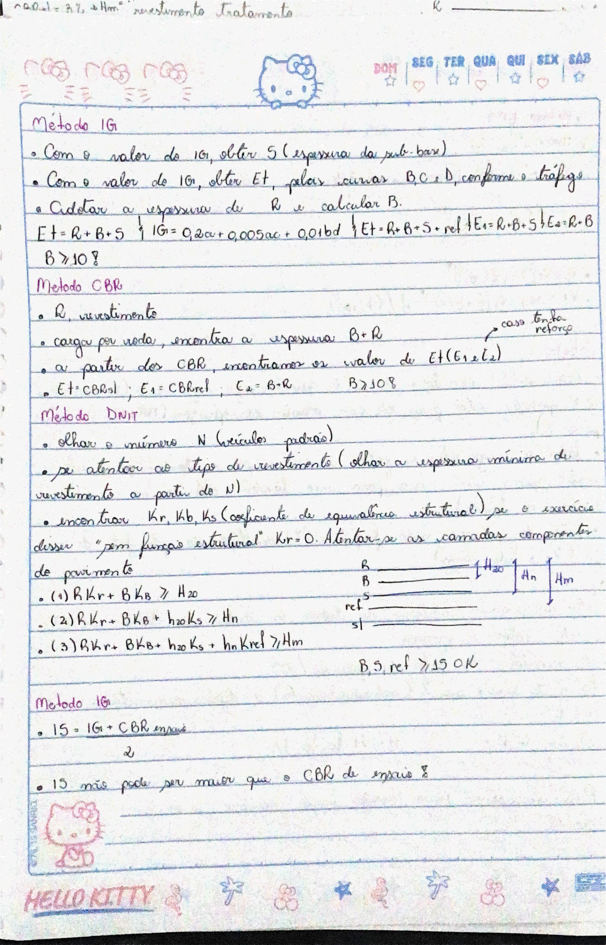 revestimento tratamento
R
DOM SEG TER QUA QUI SEX SÁB
Método IG
• Com o valor do IG, obter S (espessura da sub-base)
• Com o valor do IG, obter Et, pelas curvas B, C e D, conforme o tráfego
• Adotar a espessura de R e calcular B.
Et = R + B + S IG = 0,2a + 0,005ac + 0,01bd Et = R + B + S + ref E1 = R + B + S E2 = R + B
B ≥ 10!
Metodo CBR
• R, revestimento
• carga por roda, encontra a espessura B + R
caso tenha
reforço
• a partir dos CBR, encontramos os valor de Et (E1 e E2)
• Et = CBRsl ; E1 = CBRref, E2 = B + R B ≥ 10!
Método DNIT
• olhar o número N (veículos padrão)
• se atentar ao tipo de revestimento (olhar a espessura mínima de
revestimento a partir do N)
• encontrar Kr, Kb, Ks (coeficiente de equivalência estrutural) se o exercício
disser "sem função estrutural" Kr = 0. Atentar-se as camadas componentes
do pavimento
R
B
S
ref
sl
H20 Hn Hm
• (1) RKr + BKB ≥ H20
• (2) RKr + BKB + h20Ks ≥ Hn
• (3) RKr + BKB + h20Ks + hnKref ≥ Hm
B, S, ref ≥ 15 OK
Metodo IG
• IS = IG + CBR ensaio
2
• IS não pode ser maior que o CBR de ensaio!
HELLO KITTY